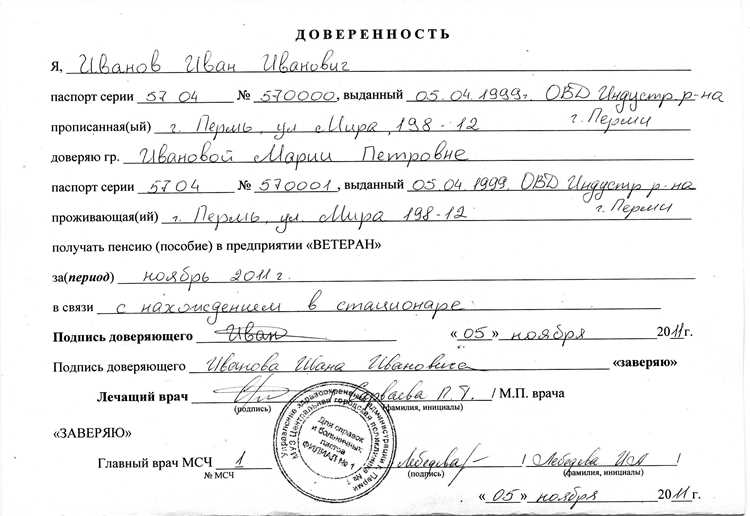 ДОВЕРЕННОСТЬ
Я, Иванов Иван Иванович
паспорт серии 57 04 № 570000, выданный 05.04.1999г. ОВД Индустр. р-на
г. Перми
прописанная(ый) г. Пермь, ул Мира, 198-12
доверяю гр. Ивановой Марии Петровне
паспорт серии 5704 № 570001, выданный 05.04.1999, ОВД Индустр р-на
г. Перми
проживающая(ий) г. Пермь, ул. Мира 198-12
получать пенсию (пособие) в предприятии «ВЕТЕРАН»
за(период) ноябрь 2011г.
в связи с нахождением в стационаре
Подпись доверяющего Иван «05» ноября 2011г.
Подпись доверяющего Иванова Ивана Ивановича «заверяю»
Лечащий врач П.Т. / М.П. врача
(подпись) (фамилия, инициалы)
«ЗАВЕРЯЮ»
Главный врач МСЧ 1 Лебедева / Лебедева И.А /
№ МСЧ (подпись) (фамилия, инициалы)
«05» ноября 2011г.
Управление здравоохранения администрации г. Перми
МУЗ Центральная городская поликлиника №
Для справок
и больничных
листов
ФИЛИАЛ № 1